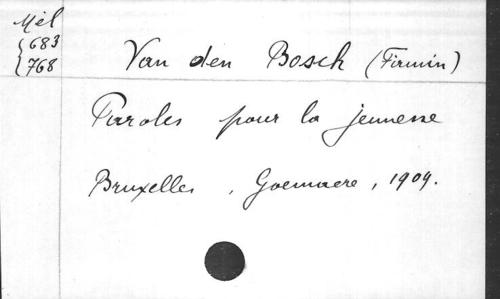 Mél
683
768
Van den Bosch (Firmin)
Paroles pour la jeunesse
Bruxelles, Goemaere, 1909.